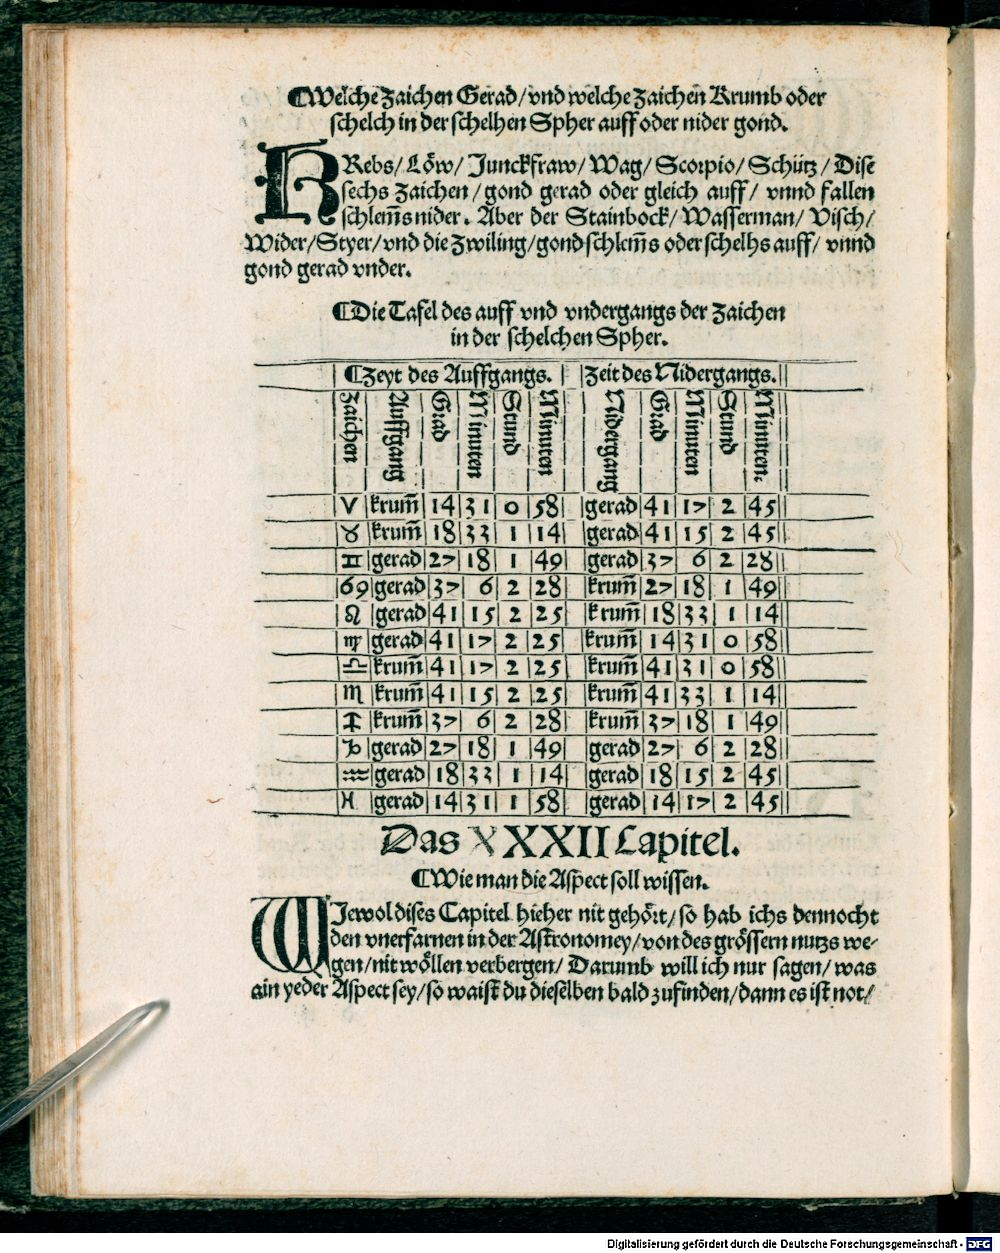 ¶Welche Zaichen Gerad/vnd welche Zaichen Krumb oder
schelch in der schelhen Spher auff oder nider gond.
KRebs/ Löw/ Junckfraw/ Wag/ Scorpio/ Schütz/ Dise
sechs Zaichen/ gond gerad oder gleich auff/ vnnd fallen
schlem̃s nider. Aber der Stainbock/ Wasserman/ Visch/
Wider/Styer/vnd die Zwiling/gond schlem̃s oder schelhs auff/ vnnd
gond gerad vnder.
¶Die Tafel des auff vnd vndergangs der Zaichen
in der schelchen Spher.
¶Zeyt des Auffgangs. Zeit des Nidergangs.
Zaichen Auffgang Grad Minuten Stund Minuten Nidergang Grad Minuten Stund Minuten.
♈ krum̃ 14 31 0 58 gerad 41 17 2 45
♉ krum̃ 18 33 1 14 gerad 41 15 2 45
♊ gerad 27 18 1 49 gerad 37 6 2 28
♋ gerad 37 6 2 28 krum̃ 27 18 1 49
♌ gerad 41 15 2 25 krum̃ 18 33 1 14
♍ gerad 41 17 2 25 krum̃ 14 31 0 58
♎ krum̃ 41 17 2 25 krum̃ 41 31 0 58
♏ krum̃ 41 15 2 25 krum̃ 41 33 1 14
♐ krum̃ 37 6 2 28 krum̃ 37 18 1 49
♑ gerad 27 18 1 49 gerad 27 6 2 28
♒ gerad 18 33 1 14 gerad 18 15 2 45
♓ gerad 14 31 1 58 gerad 14 17 2 45
Das XXXXII Capitel.
¶Wie man die Aspect soll wissen.
WJewol dises Capitel hieher nit gehört/so hab ichs dennocht
den vnerfarnen in der Astronomey/von des grössern nutzs we-
gen/nit wöllen verbergen/ Darumb will ich nur sagen/ was
ain yeder Aspect sey/so waist du dieselben bald zufinden/dann es ist not/
Digitalisierung gefördert durch die Deutsche Forschungsgemeinschaft - DFG